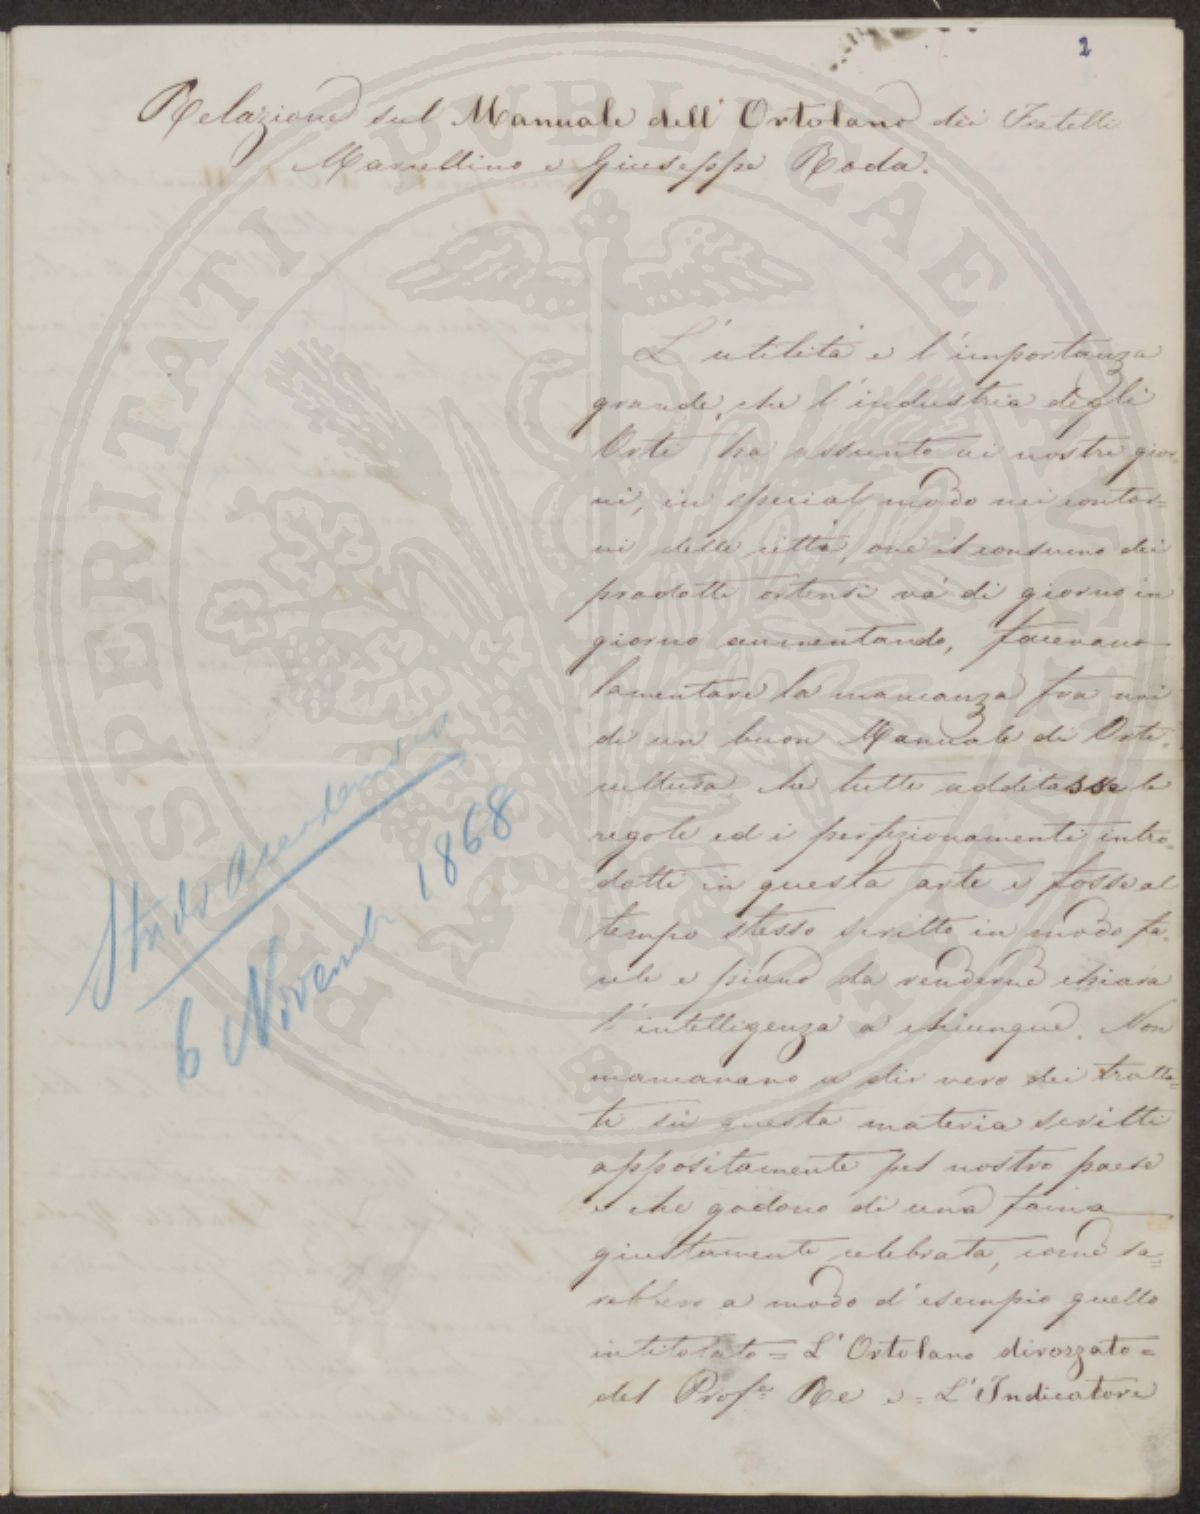 2
Relazione sul Manuale dell' Ortolano dei Fratelli
Marcellino e Giuseppe Roda.
L'utilità e l'importanza
grande, che l'industria degli
Orti ha assunto ai nostri gior-
ni, in special modo nei contor=
ni delle città, ove il consumo dei
prodotti ortensi và di giorno in
giorno aumentando, facevano
lamentare la mancanza fra noi
di un buon Manuale di Orti-
cultura che tutte additasse le
regole ed i perfezionamenti intro=
dotti in questa arte e fosse al
tempo stesso scritto in modo fa-
cile e piano da renderne chiara
l'intelligenza a chiunque. Non
mancavano a dir vero dei tratta=
ti su questa materia scritti
appositamente pel nostro paese
e che godono di una fama
giustamente celebrata, come sa=
rebbero a modo d'esempio quello
intitolato = L'Ortolano dirozzato =
del Prof.re Re e = L'Indicatore
Studio Accademico
6 Novembre 1868
PROSPERITATI PUBLICAE AUGENDAE